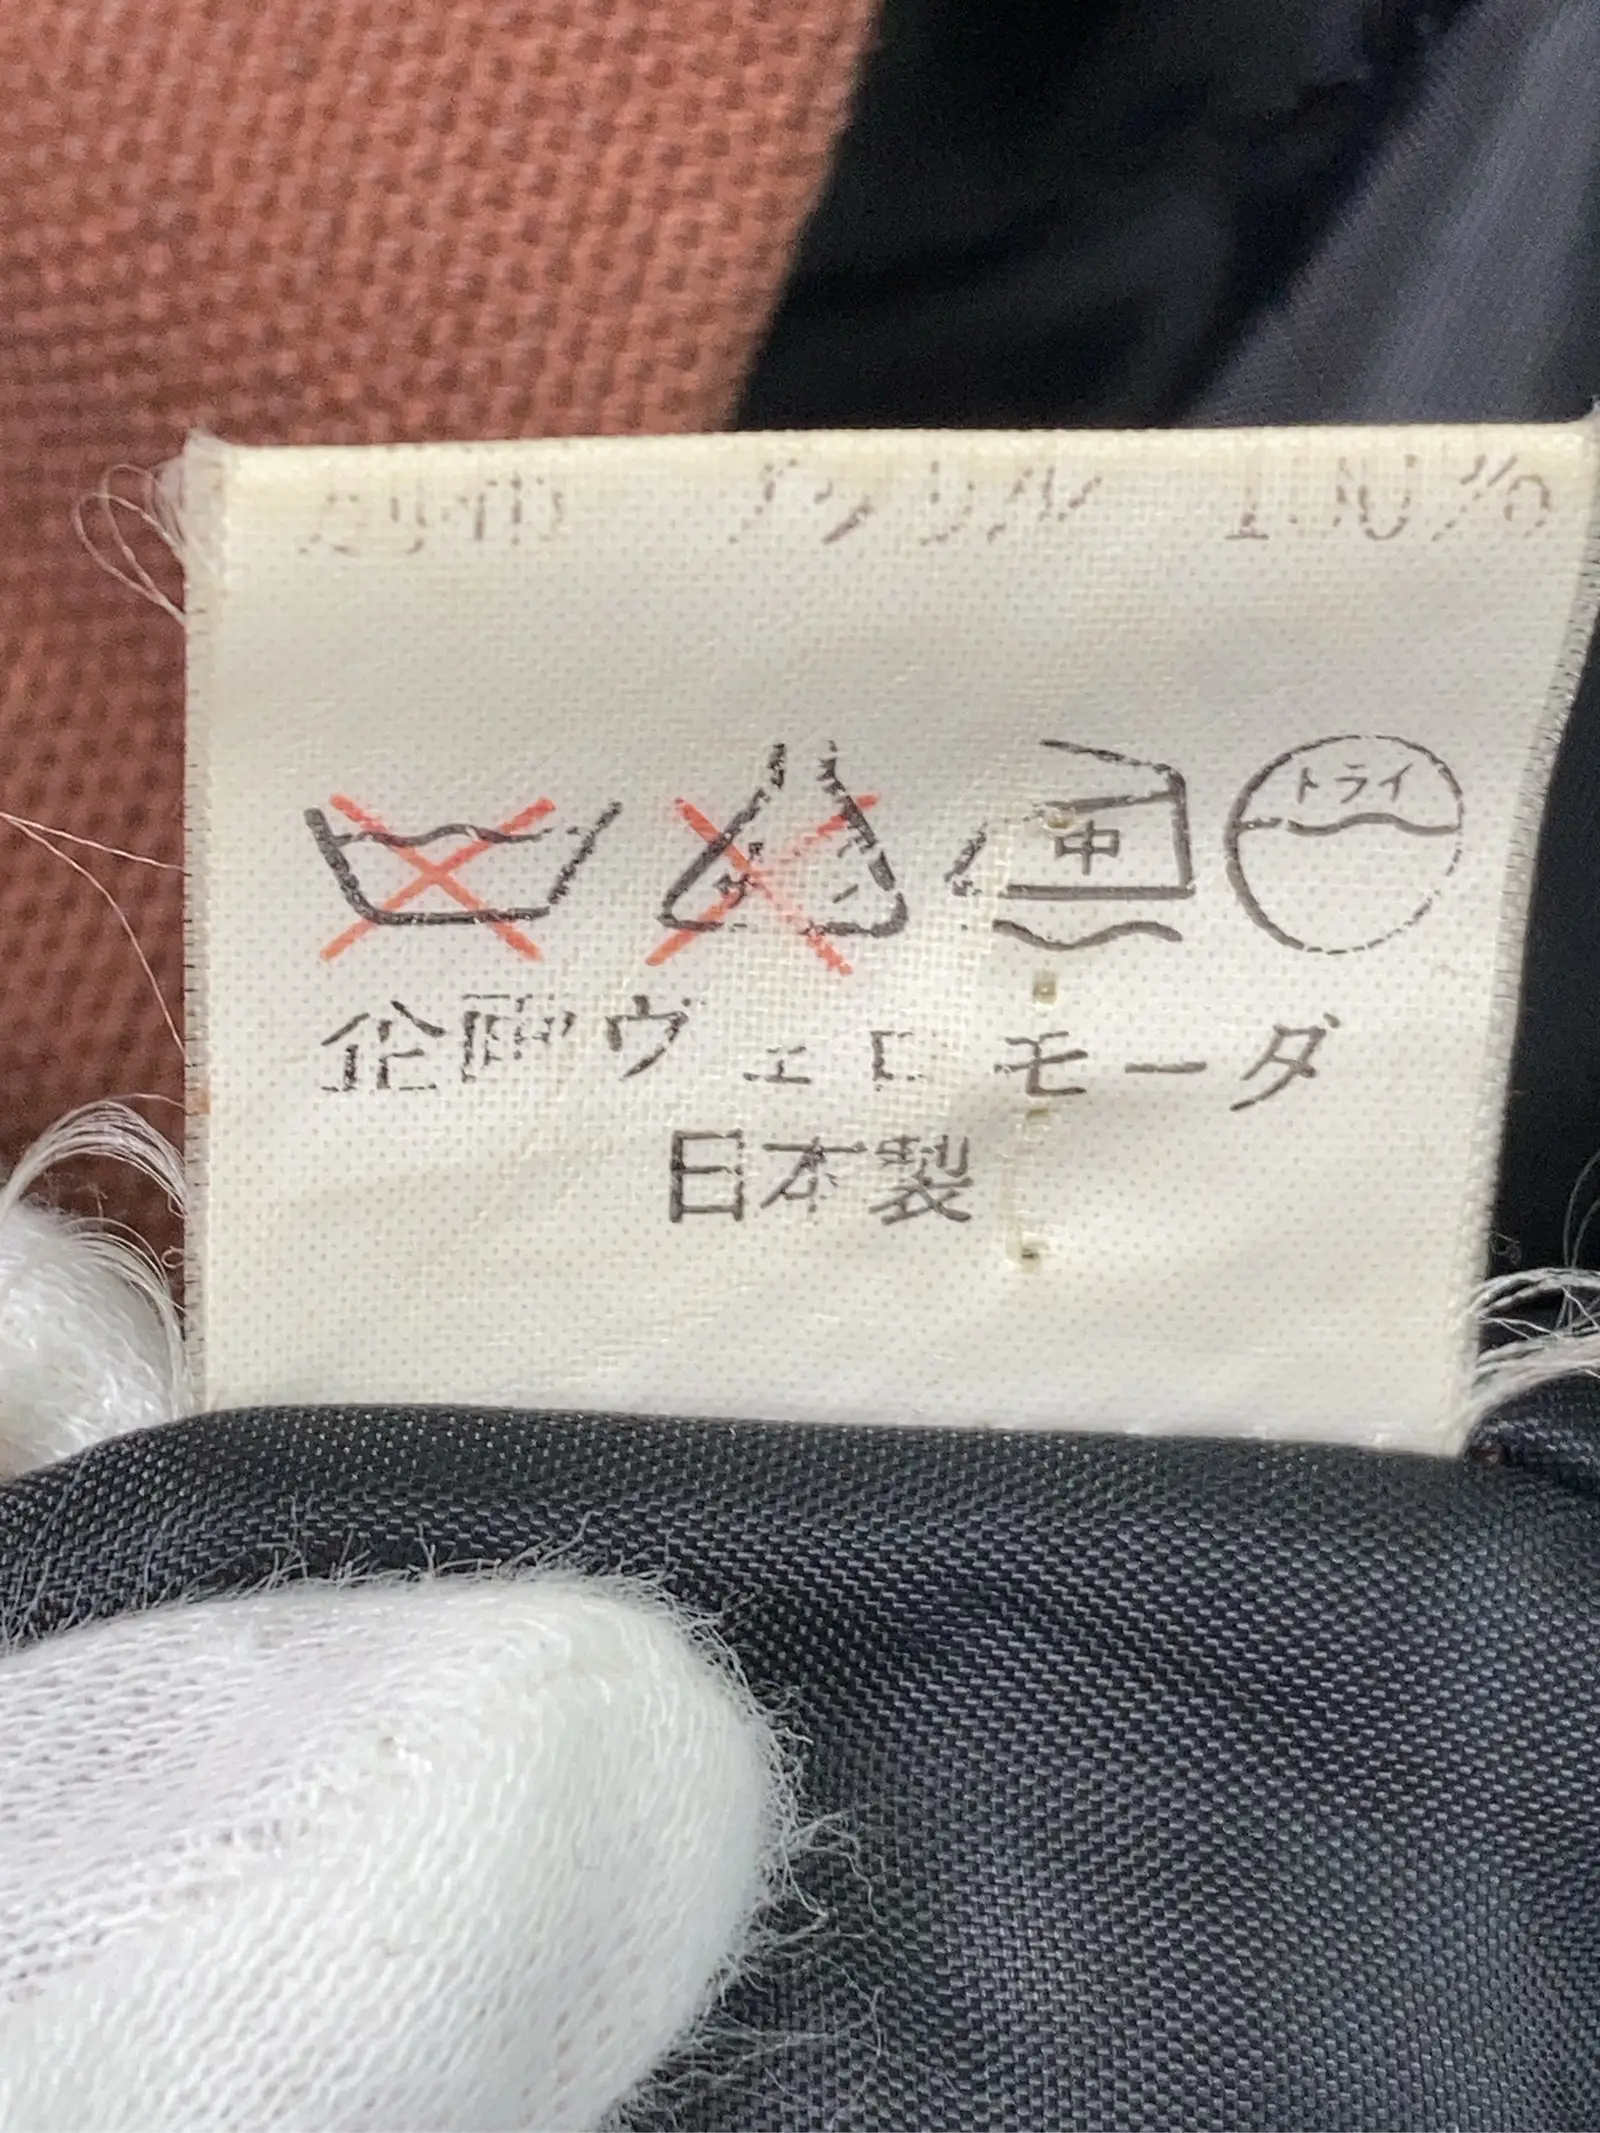 100%
中 ドライ
企画ヴェロモーダ
日本製